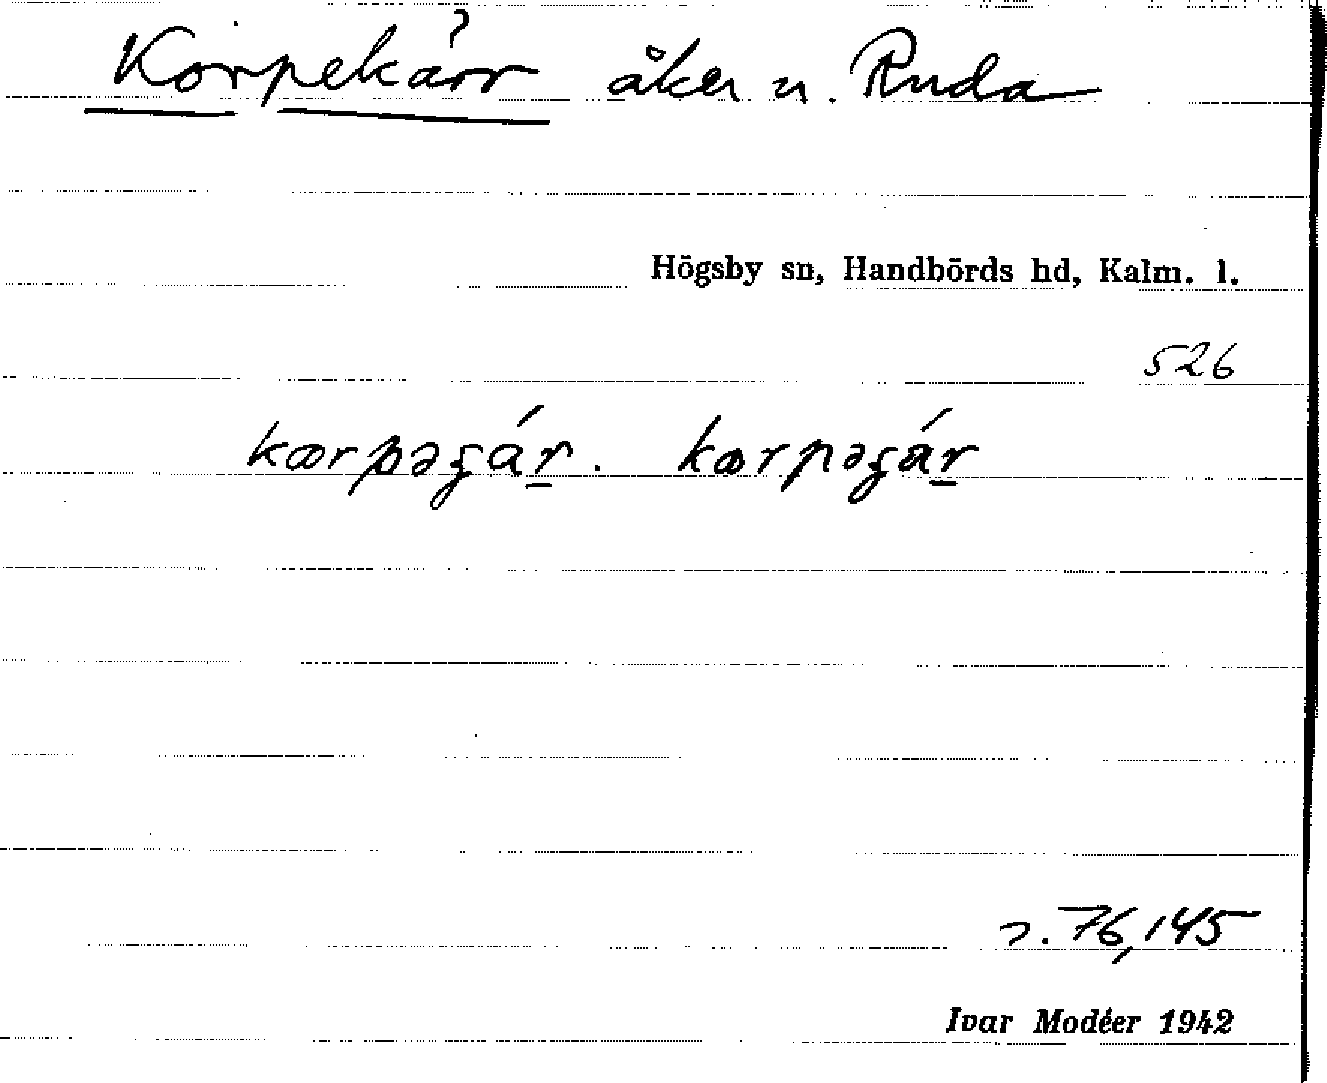 Korpekärr åker u. Ruda
Högsby sn, Handbörds hd, Kalm. l.
526
kœrpəgár. kœrpəgár
s. 76,145
Ivar Modéer 1942